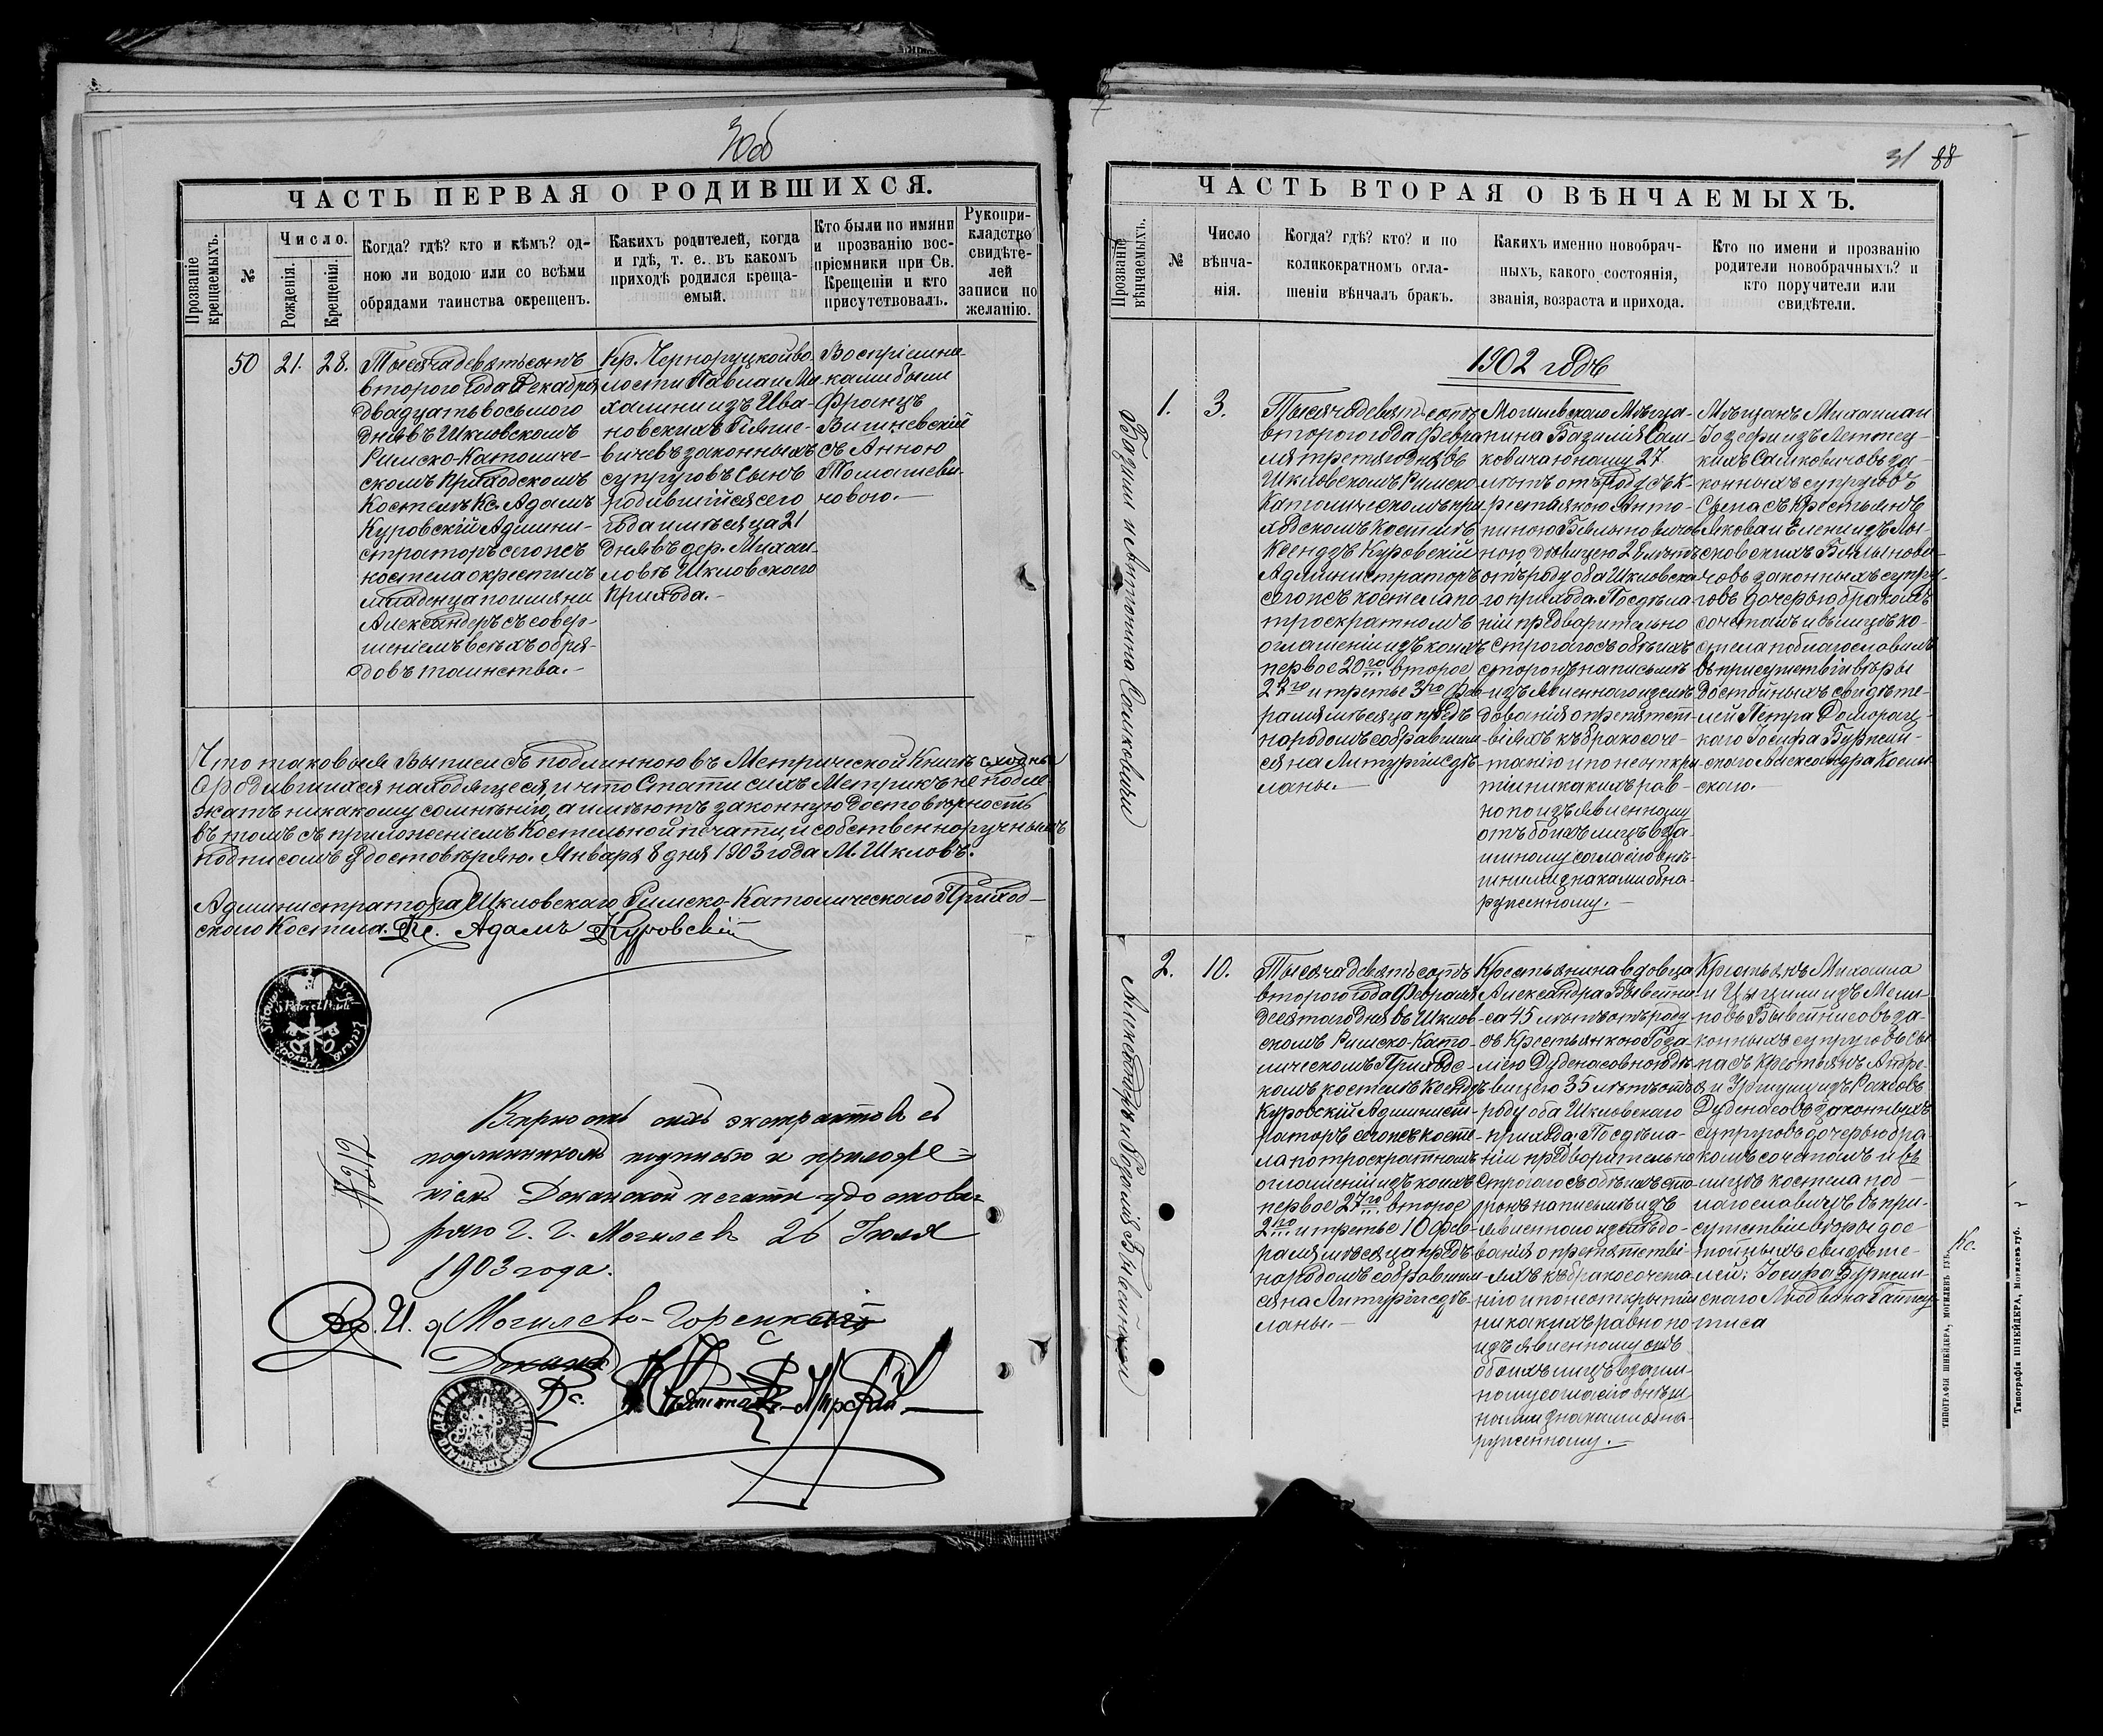 30об
ЧАСТЬ ПЕРВАЯ О РОДИВШИХСЯ.
Прозваніе крещаемыхъ.
№
Число.
Рожденія.
Крещенія.
Когда? гдѣ? кто и кѣмъ? од-
ною ли водою или со всѣми
обрядами таинства окрещенъ.
Какихъ родителей, когда
и гдѣ, т. е. въ какомъ
приходѣ родился креща-
емый.
Кто были по имяни
и прозванію вос-
пріемники при Св.
Крещеніи и кто
присутствовалъ.
Рукопри-
кладство
свидѣте-
лей
записи по
желанію.
50
21.
28.
Тысяча девятьсотъ
второго года Декабря
двадцать восьмого
дня въ Шкловскомъ
Римско-Католиче-
скомъ Приходскомъ
Костелѣ Кс. Адамъ
Куровскій Админи-
страторъ сего же
костела окрестилъ
младенца по имяни
Александеръ съ совер-
шеніемъ всѣхъ обря-
довъ таинства.-
Кр. Черноруцкой во-
лости Павла и Ми-
халины изъ Ива-
новскихъ
законныхъ
супруговъ Сынъ
родившійся сего
года и мѣсяца 21
дня въ дер. Михай-
ловѣ Шкловскаго
Прихода.-
Воспріемни-
ками были
Францъ
Вишневскій
съ Анною
новою.-
Что таковыя Выписи съ подлинною въ Метрической Книгѣ сходны
О родившихся находящеся, и что Статьи сихъ Метрикъ не подле-
жатъ никакому сомнѣнію, а имѣютъ законную достовѣрность
въ томъ съ приложеніемъ Костельной печати, и собственноручнымъ
подписомъ удостовѣряю. Января 8 дня 1903 года М. Шкловъ.
Администратора Шкловскаго Римско-Католическаго Приход-
скаго Костела. Кс. Адамъ Куровскій
№ 212
Вѣрность сихъ экстрактовъ съ
подлинникомъ подписью и приложе=
ніемъ Деканской печати удостовѣ-
ряю Г. Г. Могилевъ 26 Іюля
1903 года.
Вр. И. д. Могилево-Горецкаго
Декана
Кс.
31 88
ЧАСТЬ ВТОРАЯ О ВѢНЧАЕМЫХЪ.
Прозваніе вѣнчаемыхъ.
№
Число
вѣнча-
нія.
Когда? гдѣ? кто? и по
коликократномъ огла-
шеніи вѣнчалъ бракъ.
Какихъ именно новобрач-
ныхъ, какого состоянія,
званія, возраста и прихода.
Кто по имени и прозванію
родители новобрачныхъ? и
кто поручители или
свидѣтели.
1902 годъ
Базыли и Антонина Самковичи
1.
3.
Тысяча девятьсотъ
второго года Февра-
ля третяго дня въ
Шкловскомъ Римско-
Католическомъ При-
ходскомъ Костелѣ
Ксендзъ Куровскій
Администраторъ
сего же костела по
троекратномъ
оглашеніи изъ коихъ
первое 20го второе
27го и третье 3го фев-
раля мѣсяца предъ
народомъ собравшим-
ся на Литургіи сдѣ-
ланы.-
Могилевскаго Мѣща-
нина Базылія Сам-
ковича юношу 27
лѣтъ отъ роду съ К-
рестьянкою Анто-
ниною Бялыновичов-
ною дѣвицею 28 лѣтъ
отъ роду оба Шкловска-
го прихода. По сдѣла-
ніи предворительно
строгаго съ обѣихъ
сторонъ на письмѣ
изъявленнаго изслѣ-
дованія о препятст-
віяхъ къ бракосоче-
танію и по неоткры-
тіи никакихъ рав-
но по изъявленному
отъ обоихъ лицъ вза-
имному согласію внѣ-
шними знаками обна-
руженному.-
Мѣщанъ Михаила и
Іозефы изъ
Самковичовъ за-
конныхъ супруговъ
Сына съ Крестьянъ
Якова и Елены изъ
Бялынови-
човъ законныхъ супру-
говъ дочерью бракомъ
сочеталъ и въ лицѣ ко-
стела поблагословилъ
въ присутствіи вѣры
достойныхъ свидѣте-
лей Петра Доморац-
каго Іосифа Буржин-
скаго Александра
скаго.-
Александръ и Розалія
2.
10.
Тысяча девятьсотъ
второго года Февраля
десятаго дня въ Шклов-
скомъ Римско-Като-
лическомъ Приходс-
комъ костелѣ Ксендзъ
Куровскій Админист-
раторъ сего же косте-
ла по троекратномъ
оглашеніи изъ коихъ
первое 27го второе
2го и третье 10 фев-
раля мѣсяца предъ
народомъ собравшим-
ся на Литургіи сдѣ-
ланы.-
Крестьянина вдовца
Александра
са 45 лѣтъ отъ роду
съ Крестьянкою Роза-
ліею Дуденасовною дѣ-
вицею 35 лѣтъ отъ
роду оба Шкловскаго
прихода. По сдѣла-
ніи предворительно
строгаго съ обѣихъ сто-
ронъ на письмѣ изъ-
явленного изслѣдо-
ванія о препятстві-
яхъ къ бракосочета-
нію и по неоткрытіи
никакихъ равно по
изъявленному отъ
обоихъ лицъ взаим-
ному согласію внѣш-
ними знаками обна-
руженному.-
Крестьянъ Михаила
и Цыциліи изъ
за-
конныхъ супруговъ Сы-
на съ Крестьянъ Андре-
я и изъ
Дуденасовъ законныхъ
супруговъ дочерью бра-
комъ сочеталъ и въ
лицѣ костела поб-
въ при-
сутствіи вѣры дос-
тойныхъ свидѣте-
лей: Іосифа Буржин-
скаго Людвика
Кс.
ТИПОГРАФІЯ ШНЕЙДЕРА, МОГИЛЕВЪ ГУБ.
Типографія ШНЕЙДЕРА, Могилевъ губ.